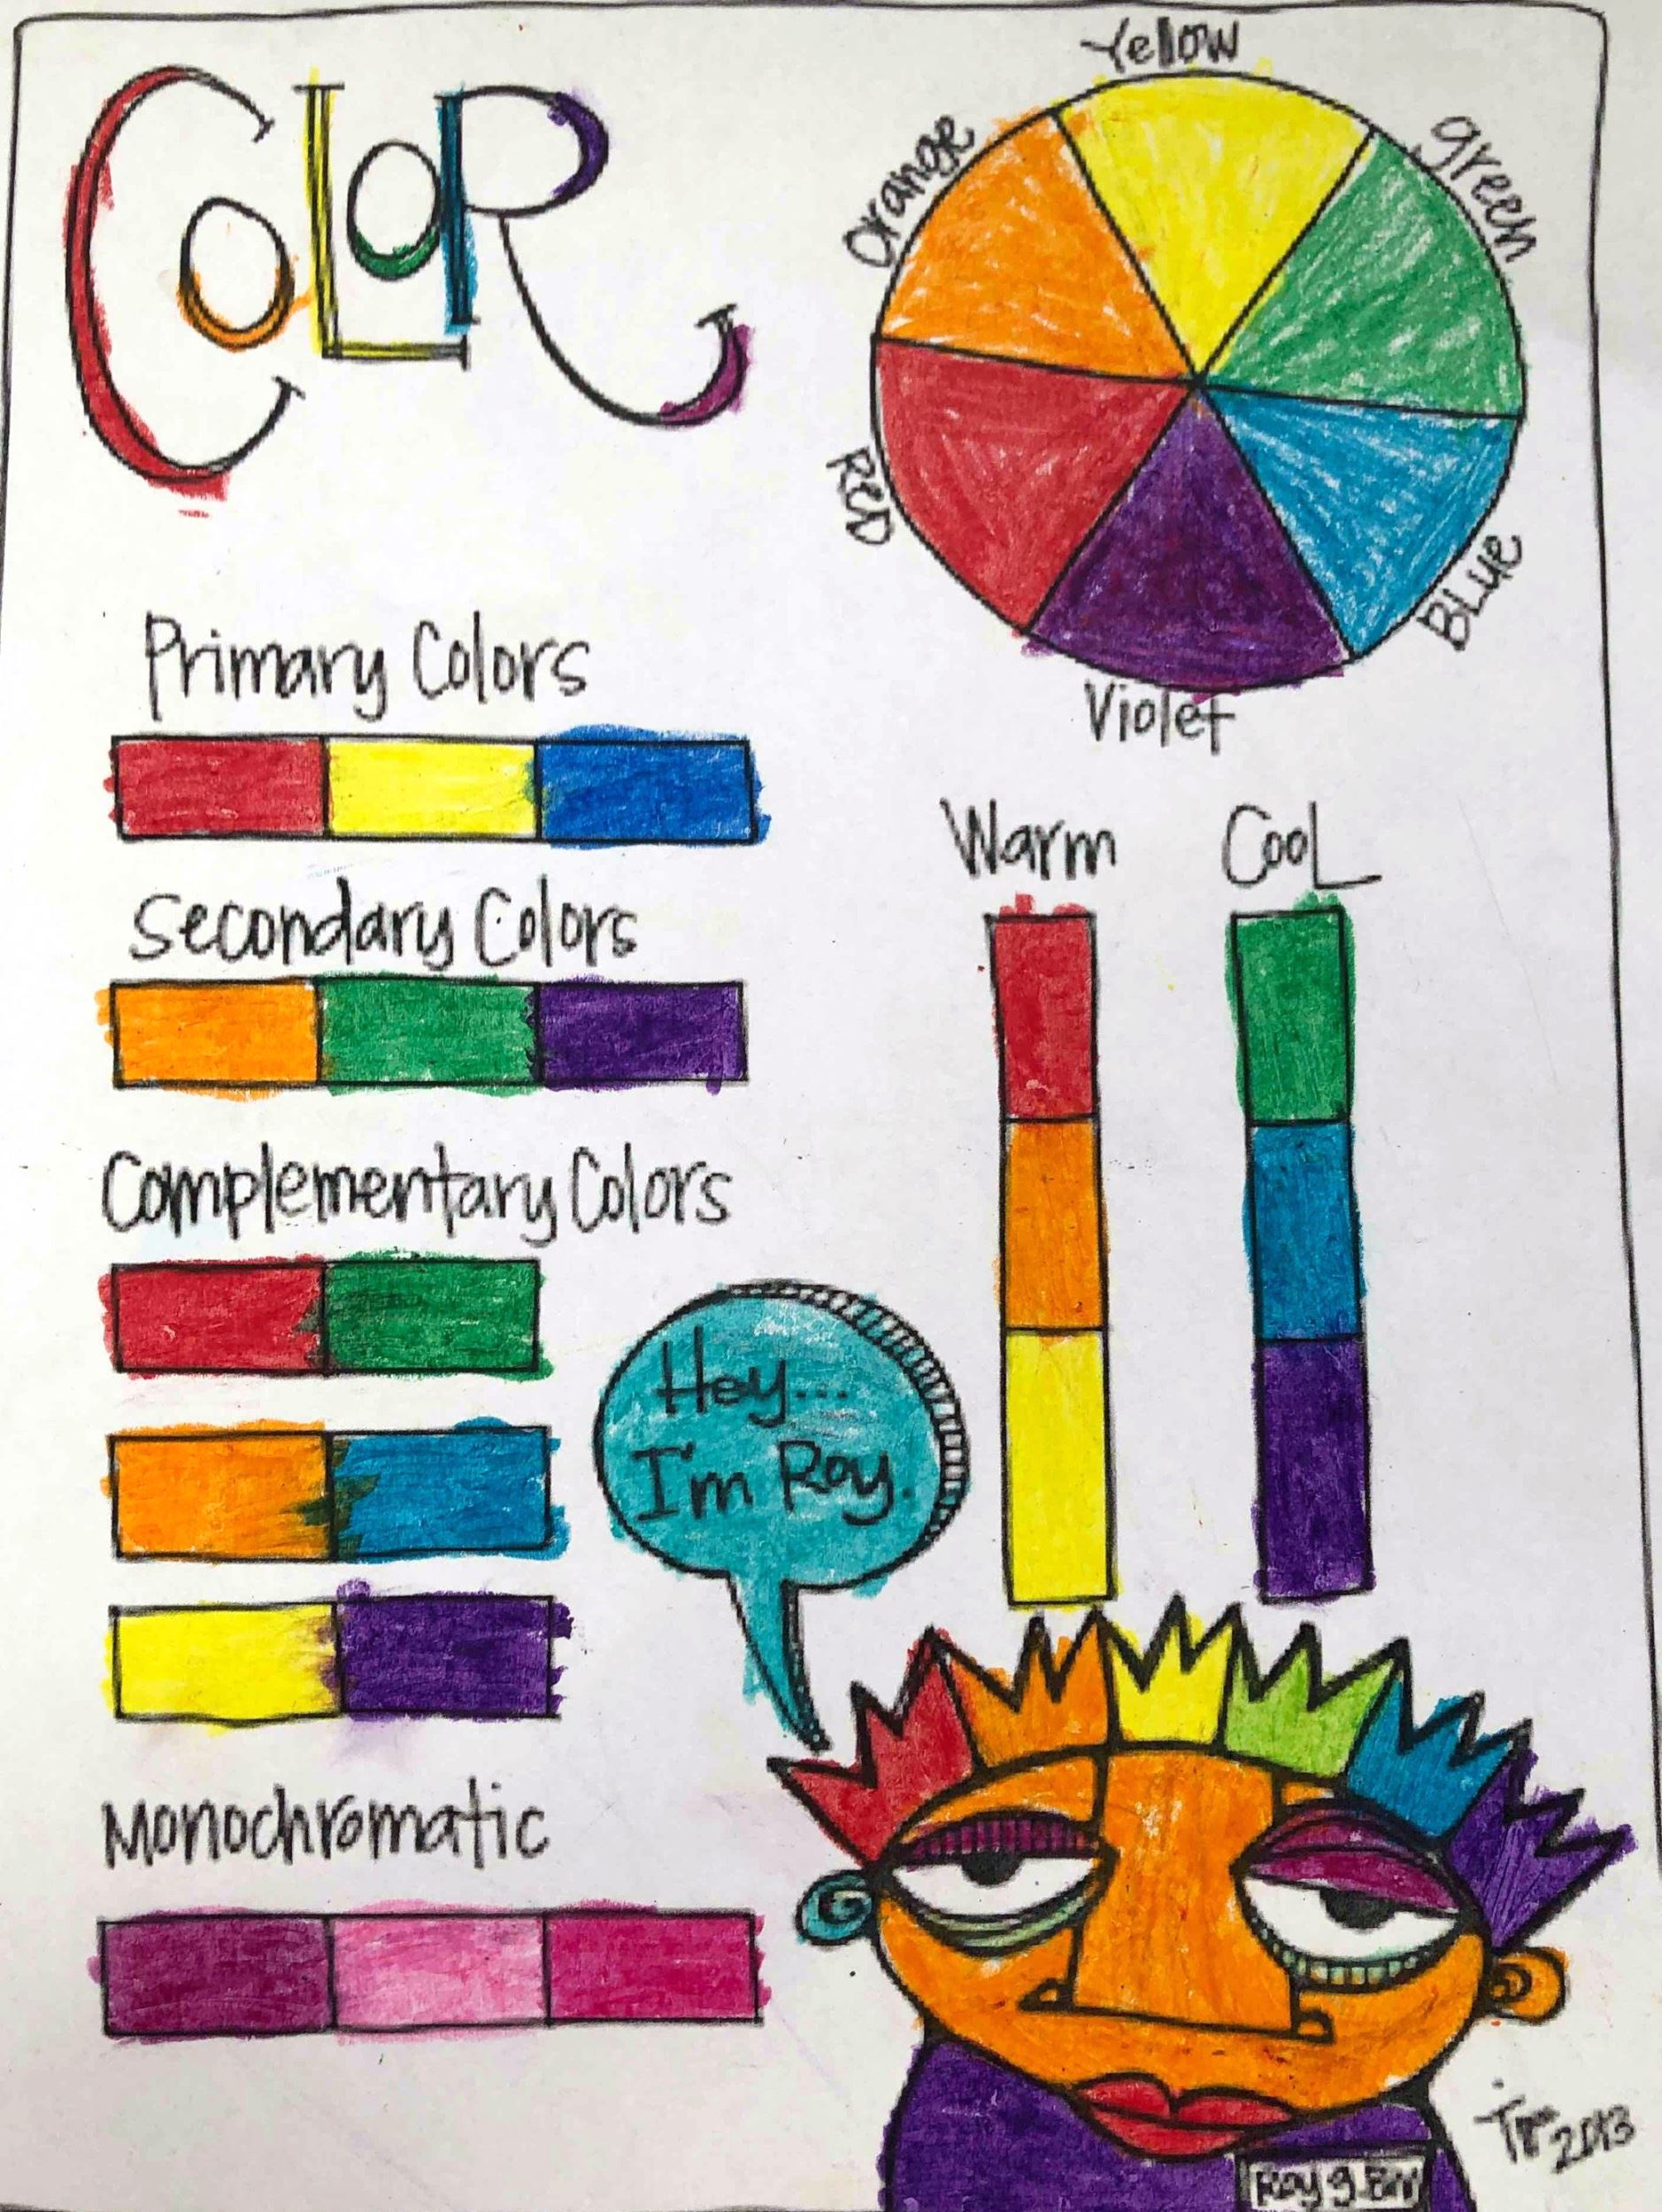 Color
Yellow
orange
green
Red
Blue
Violet
Primary Colors
Warm
Cool
Secondary Colors
Complementary Colors
Hey...
I'm Roy.
Monochromatic
2013
Roy g.